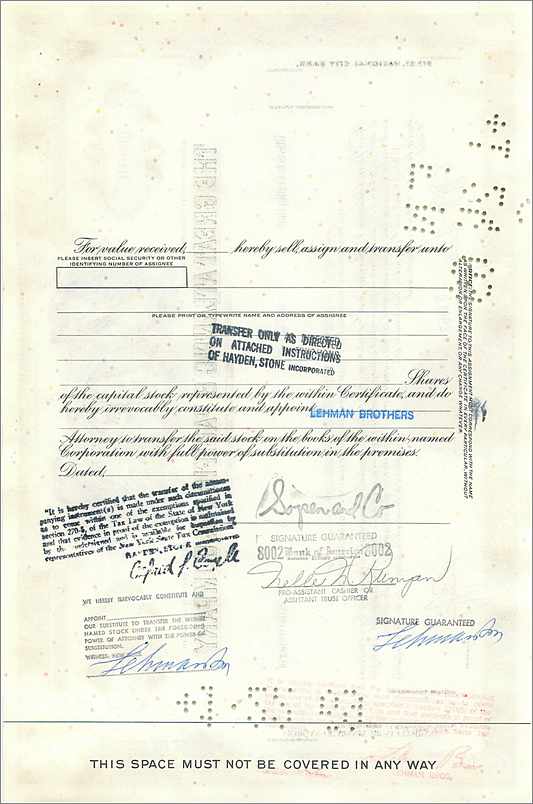 FIRST NATIONAL CITY BANK,
For value received, hereby sell, assign and transfer unto
PLEASE INSERT SOCIAL SECURITY OR OTHER
IDENTIFYING NUMBER OF ASSIGNEE
PLEASE PRINT OR TYPEWRITE NAME AND ADDRESS OF ASSIGNEE
TRANSFER ONLY AS DIRECTED
ON ATTACHED INSTRUCTIONS
OF HAYDEN, STONE INCORPORATED
Shares
of the capital stock represented by the within Certificate, and do
hereby irrevocably constitute and appoint
LEHMAN BROTHERS
Attorney to transfer the said stock on the books of the within named
Corporation with full power of substitution in the premises.
Dated,
NOTICE: THE SIGNATURE TO THIS ASSIGNMENT MUST CORRESPOND WITH THE NAME
AS WRITTEN UPON THE FACE OF THE CERTIFICATE IN EVERY PARTICULAR, WITHOUT
ALTERATION OR ENLARGEMENT, OR ANY CHANGE WHATEVER.
"It is hereby certified that the transfer of the accom-
panying instrument(s) is made under such circumstances
as to come within one of the exemptions specified in
section 270-5, of the Tax Law of the State of New York
and that evidence in proof of the exemption is maintained
by the undersigned and is available for inspection by
representatives of the New York State Tax Commission."
HAYDEN, STONE INCORPORATED
SIGNATURE GUARANTEED
8002 Bank of America 8002
PRO-ASSISTANT CASHIER OR
ASSISTANT TRUST OFFICER
WE HEREBY IRREVOCABLY CONSTITUTE AND
APPOINT
OUR SUBSTITUTE TO TRANSFER THE WITHIN
NAMED STOCK UNDER THE FOREGOING
POWER OF ATTORNEY WITH THE POWER OF
SUBSTITUTION.
Lehman Bro
SIGNATURE GUARANTEED
Lehman Bro
LEHMAN BROS.
THIS SPACE MUST NOT BE COVERED IN ANY WAY